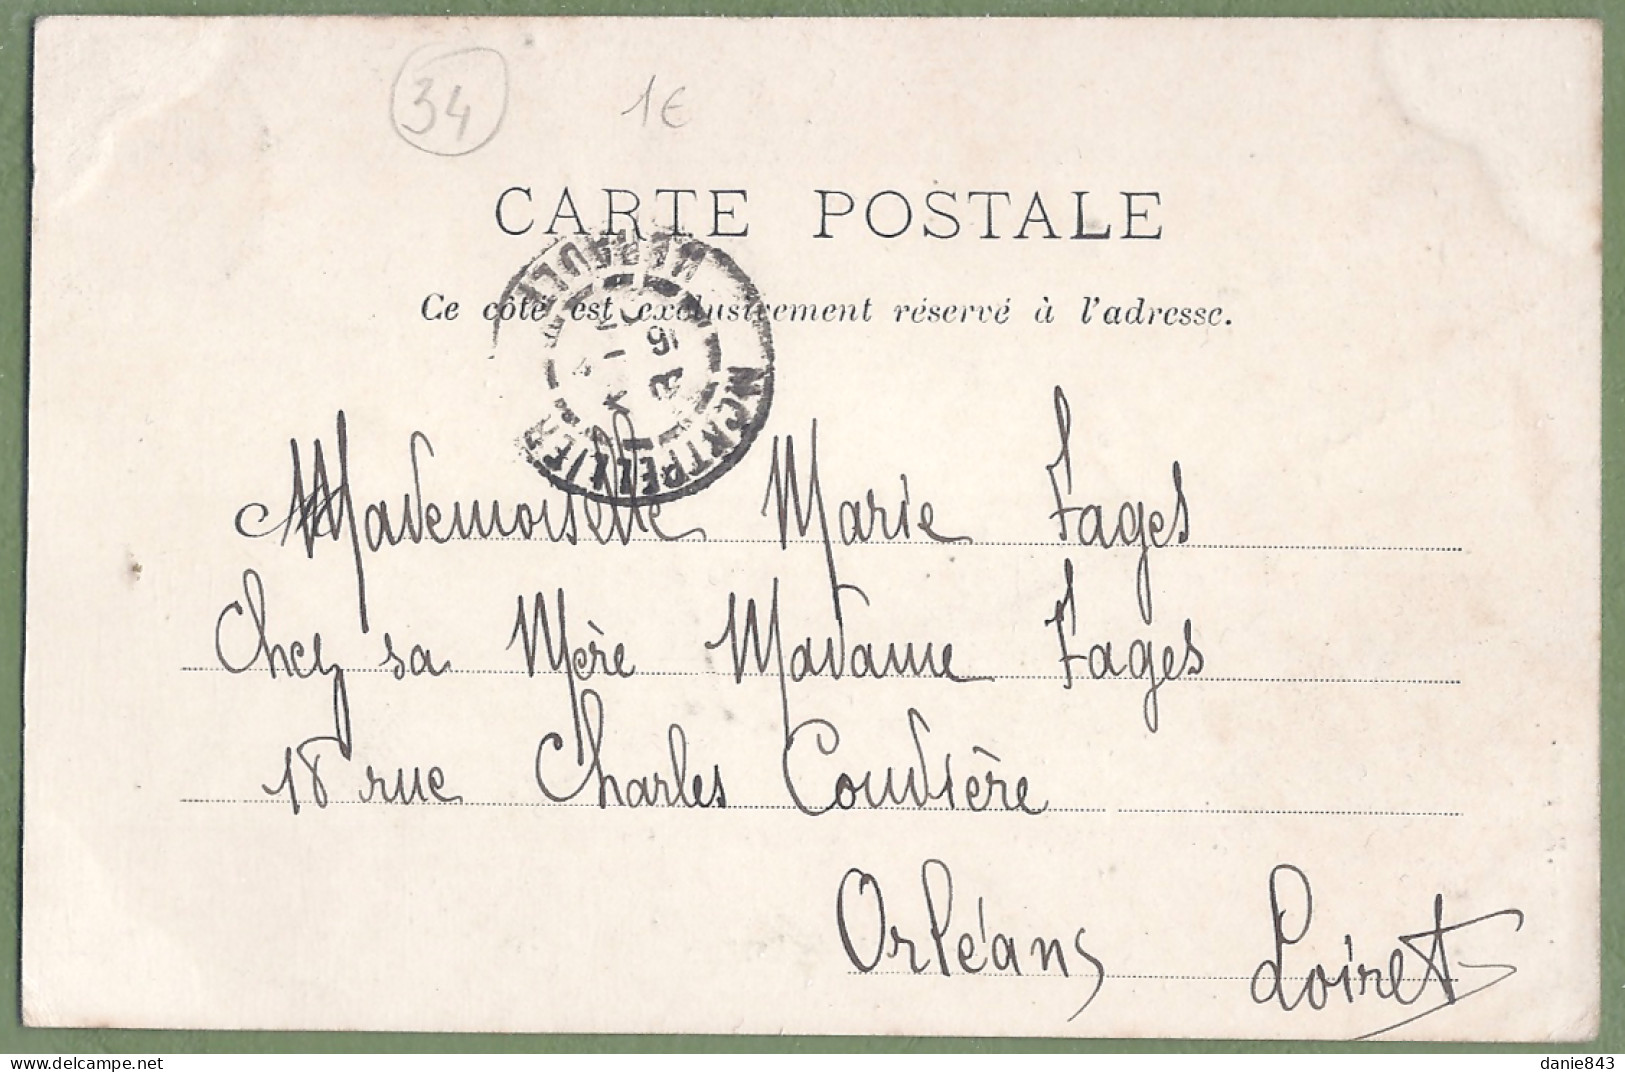 34
1€
CARTE POSTALE
Ce côté est exclusivement réservé à l'adresse.
MONTPELLIER
HERAULT
Mademoiselle Marie Fages
Chez sa Mère Madame Fages
18 rue Charles Coudière
Orléans Loiret
danie843